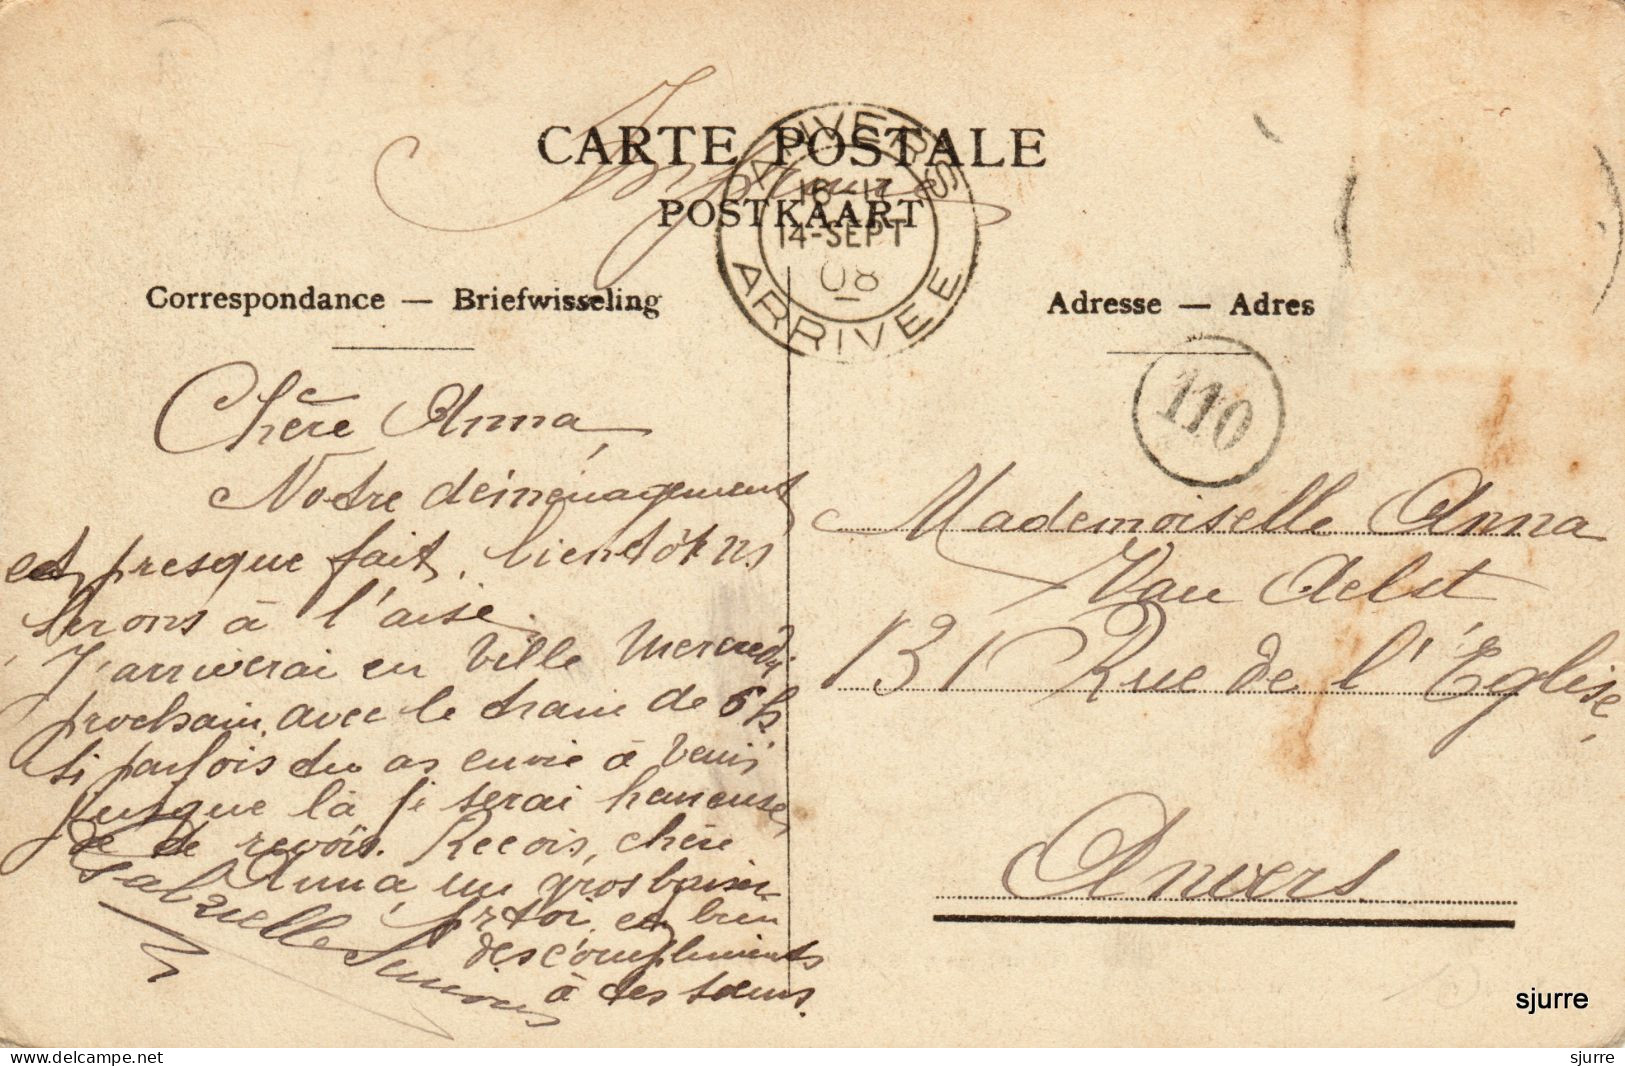 CARTE POSTALE
POSTKAART
ANVERS
16-17
14-SEPT
08
ARRIVEE
Correspondance — Briefwisseling
Adresse — Adres
110
Chère Anna,
Notre déménagement
est presque fait, bientôt ns
serons à l'aise.
J'arriverai en ville mercredi
prochain, avec le train de 6h
si parfois tu as envie à venir
jusque là je serai heureuse
de te revoir. Reçois, chère
Anna, un gros baiser
pr toi, et bien
des compliments
à tes sœurs.
Gabrielle
Mademoiselle Anna
Van Aelst
131 Rue de l'Église,
Anvers
sjurre
delcampe.net
sjurre